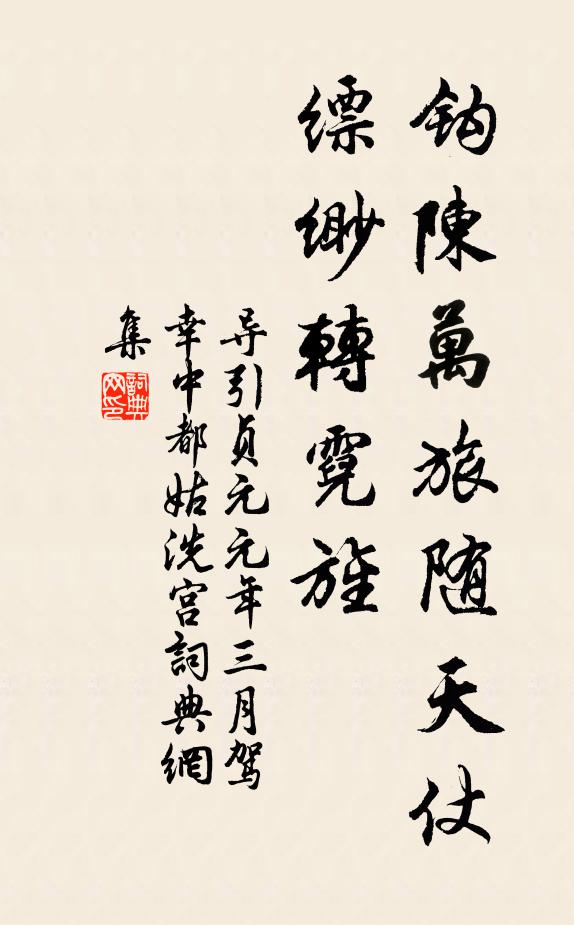 鈎陳萬旅随天仗
缥缈轉霓旌
导引貞元元年三月駕
幸中都姑洗宫詞典網
集
詞典网印